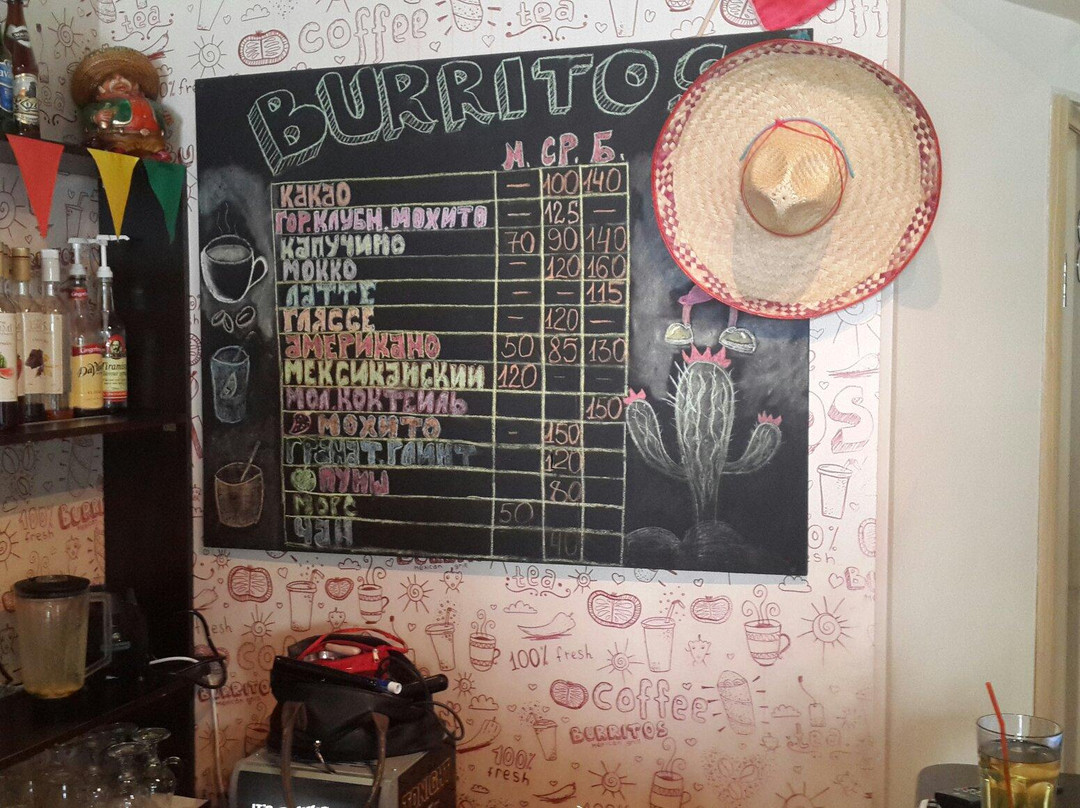 coffee
tea
BURRITOS
М. СР. Б.
КАКАО — 100 140
ГОР. КЛУБН. МОХИТО — 125 —
КАПУЧИНО 70 90 140
МОККО — 120 160
ЛАТТЕ — — 115
ГЛЯССЕ — 120 —
АМЕРИКАНО 50 85 130
МЕКСИКАНСКИЙ 120 — —
МОЛ. КОКТЕЙЛЬ 150
МОХИТО — 150
ГРАНАТ. 120
ПУМЫ 80
МОРС 50
ЧАЙ 40
100%
fresh
BURRITOS
mexican grill
tea
fresh
100% fresh
coffee
BURRITOS
mexican grill
100%
fresh